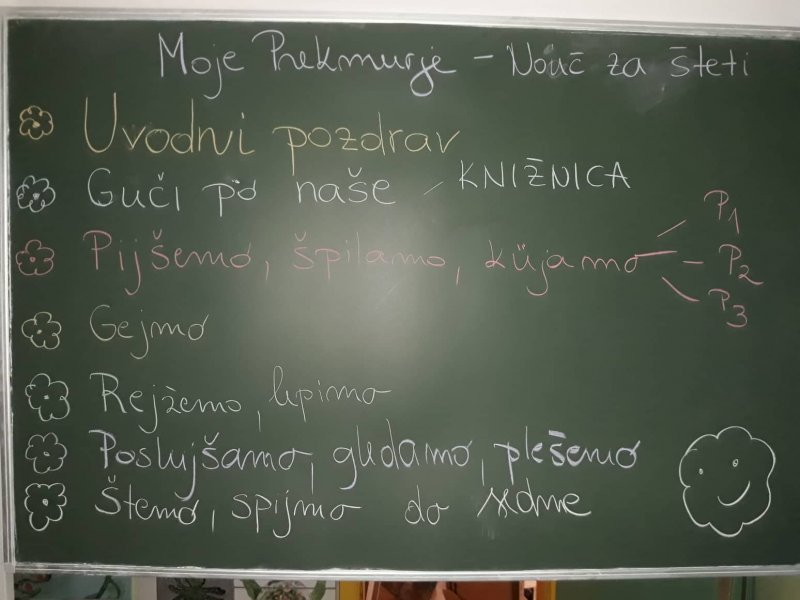 Moje Prekmurje - Nouč za šteti
Uvodni pozdrav
Guči po naše - KNIŽNICA
Pijšemo, špilamo, küjamo - P1
- P2
P3
Gejmo
Rejžemo, lepimo
Poslujšamo, gledamo, plešemo
Štemo, spijmo do